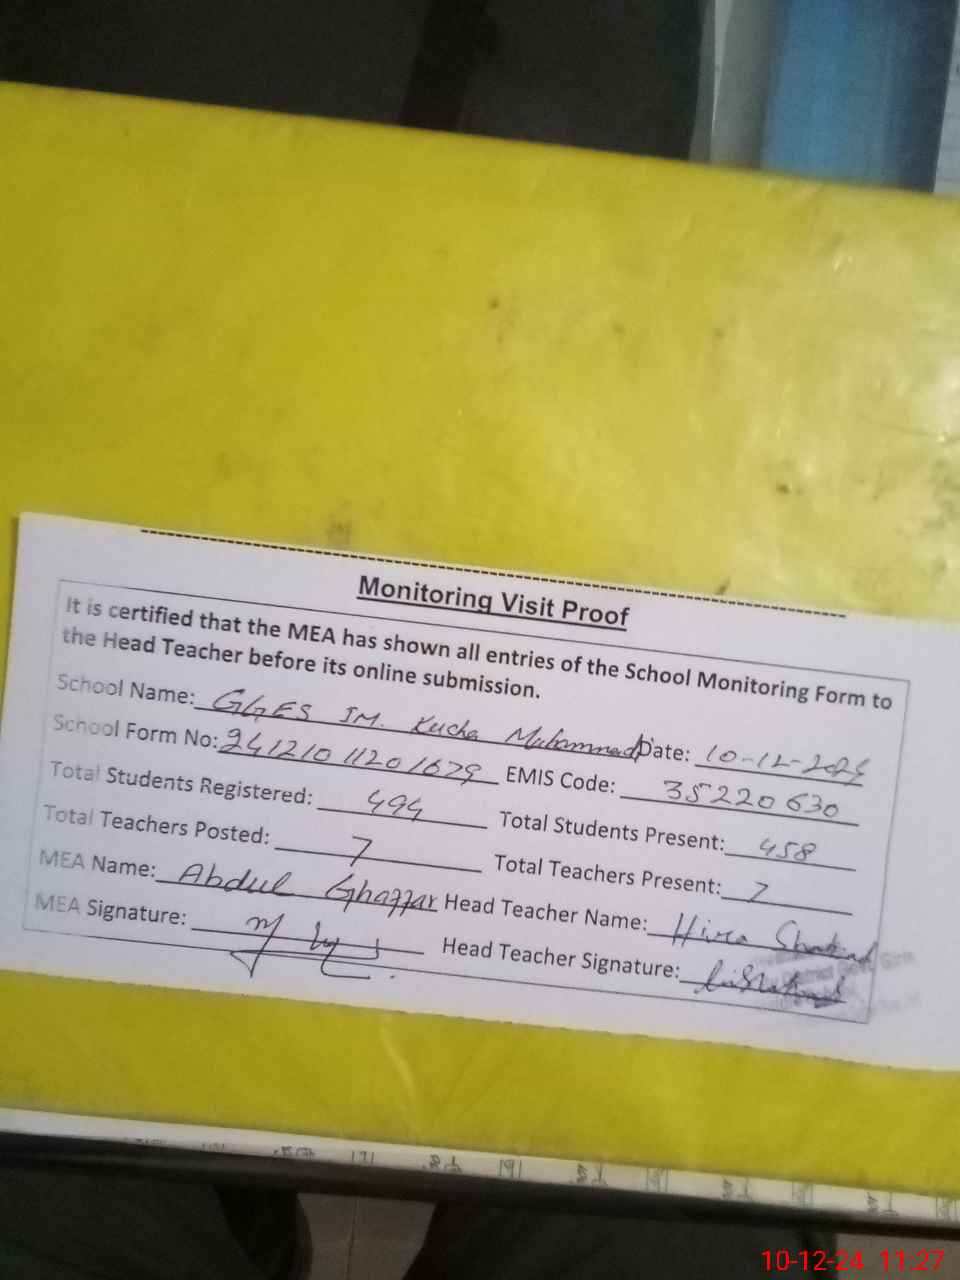 Monitoring Visit Proof
It is certified that the MEA has shown all entries of the School Monitoring Form to
the Head Teacher before its online submission.
School Name: GGES JM. Kucha Muhammad Date: 10-12-2024
School Form No: 24121011201679 EMIS Code: 35220630
Total Students Registered: 494 Total Students Present: 458
Total Teachers Posted: 7 Total Teachers Present: 7
MEA Name: Abdul Ghaffar Head Teacher Name: Hira
MEA Signature: Head Teacher Signature:
10-12-24 11:27